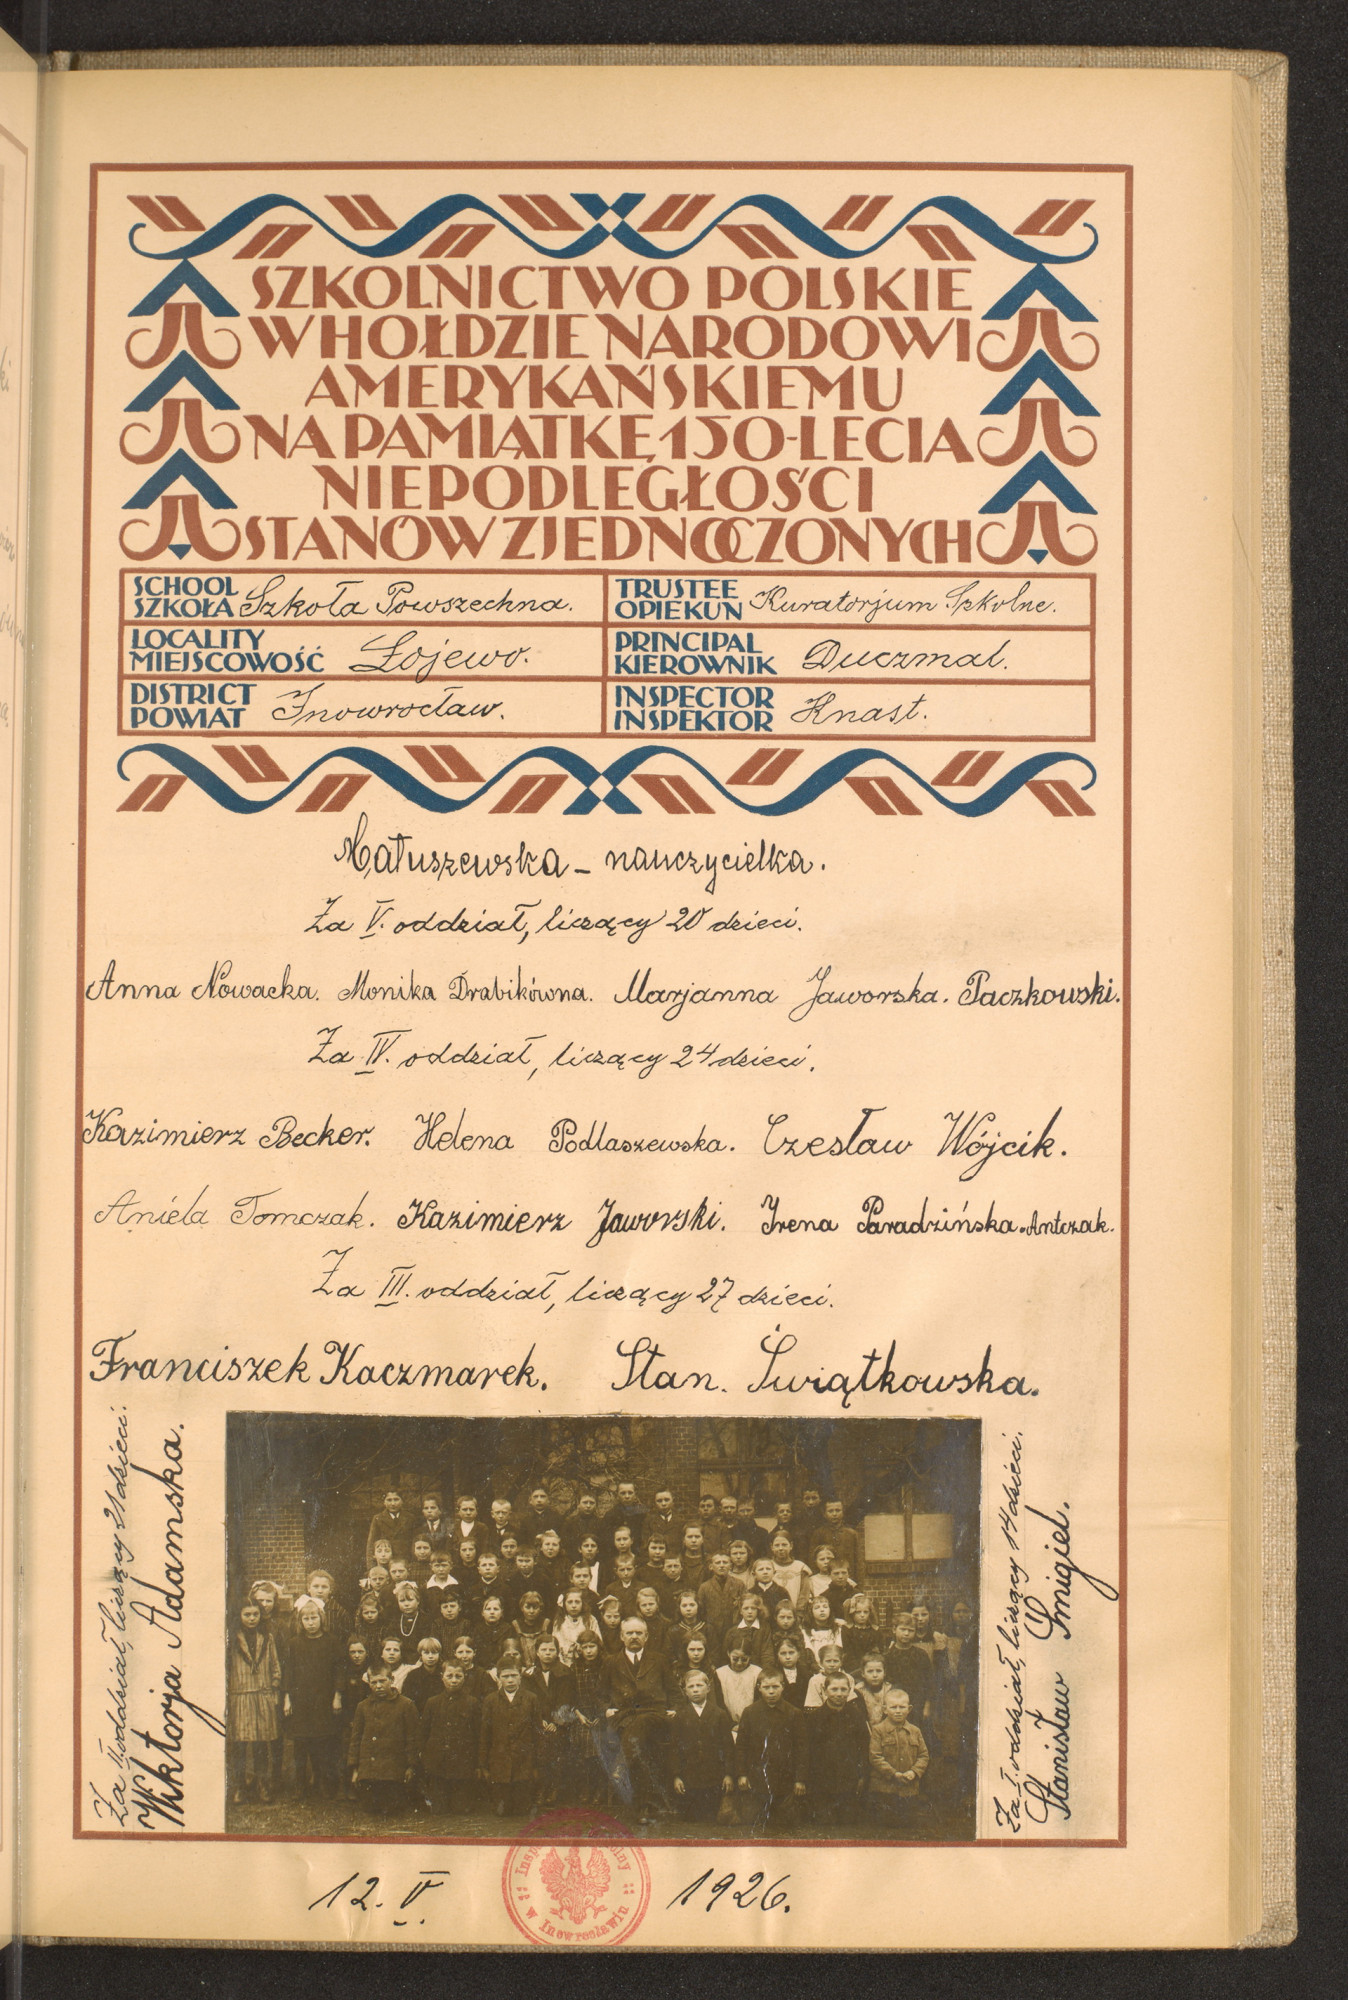 SZKOLNICTWO POLSKIE
W HOŁDZIE NARODOWI
AMERYKAŃSKIEMU
NA PAMIĄTKĘ 150-LECIA
NIEPODLEGŁOŚCI
STANÓW ZJEDNOCZONYCH
SCHOOL
SZKOŁA Szkoła Powszechna.
TRUSTEE
OPIEKUN Kuratorjum Szkolne.
LOCALITY
MIEJSCOWOŚĆ Łojewo.
PRINCIPAL
KIEROWNIK Duczmal.
DISTRICT
POWIAT Inowrocław.
INSPECTOR
INSPEKTOR Knast.
Matuszewska – nauczycielka.
Za V. oddział, liczący 20 dzieci.
Anna Nowacka. Monika Drabikówna. Marjanna Jaworska. Paczkowski.
Za IV. oddział, liczący 24 dzieci.
Kazimierz Becker. Helena Podlaszewska. Czesław Wójcik.
Aniela Tomczak. Kazimierz Jaworski. Irena Paradzińska. Antczak.
Za III. oddział, liczący 27 dzieci.
Franciszek Kaczmarek. Stan. Świątkowska.
Za II. oddział, liczący 21 dzieci.
Wiktorja Adamska.
Za I. oddział, liczący 14 dzieci.
Stanisław Smigiel.
12. V. 1926.
w Inowrocławiu